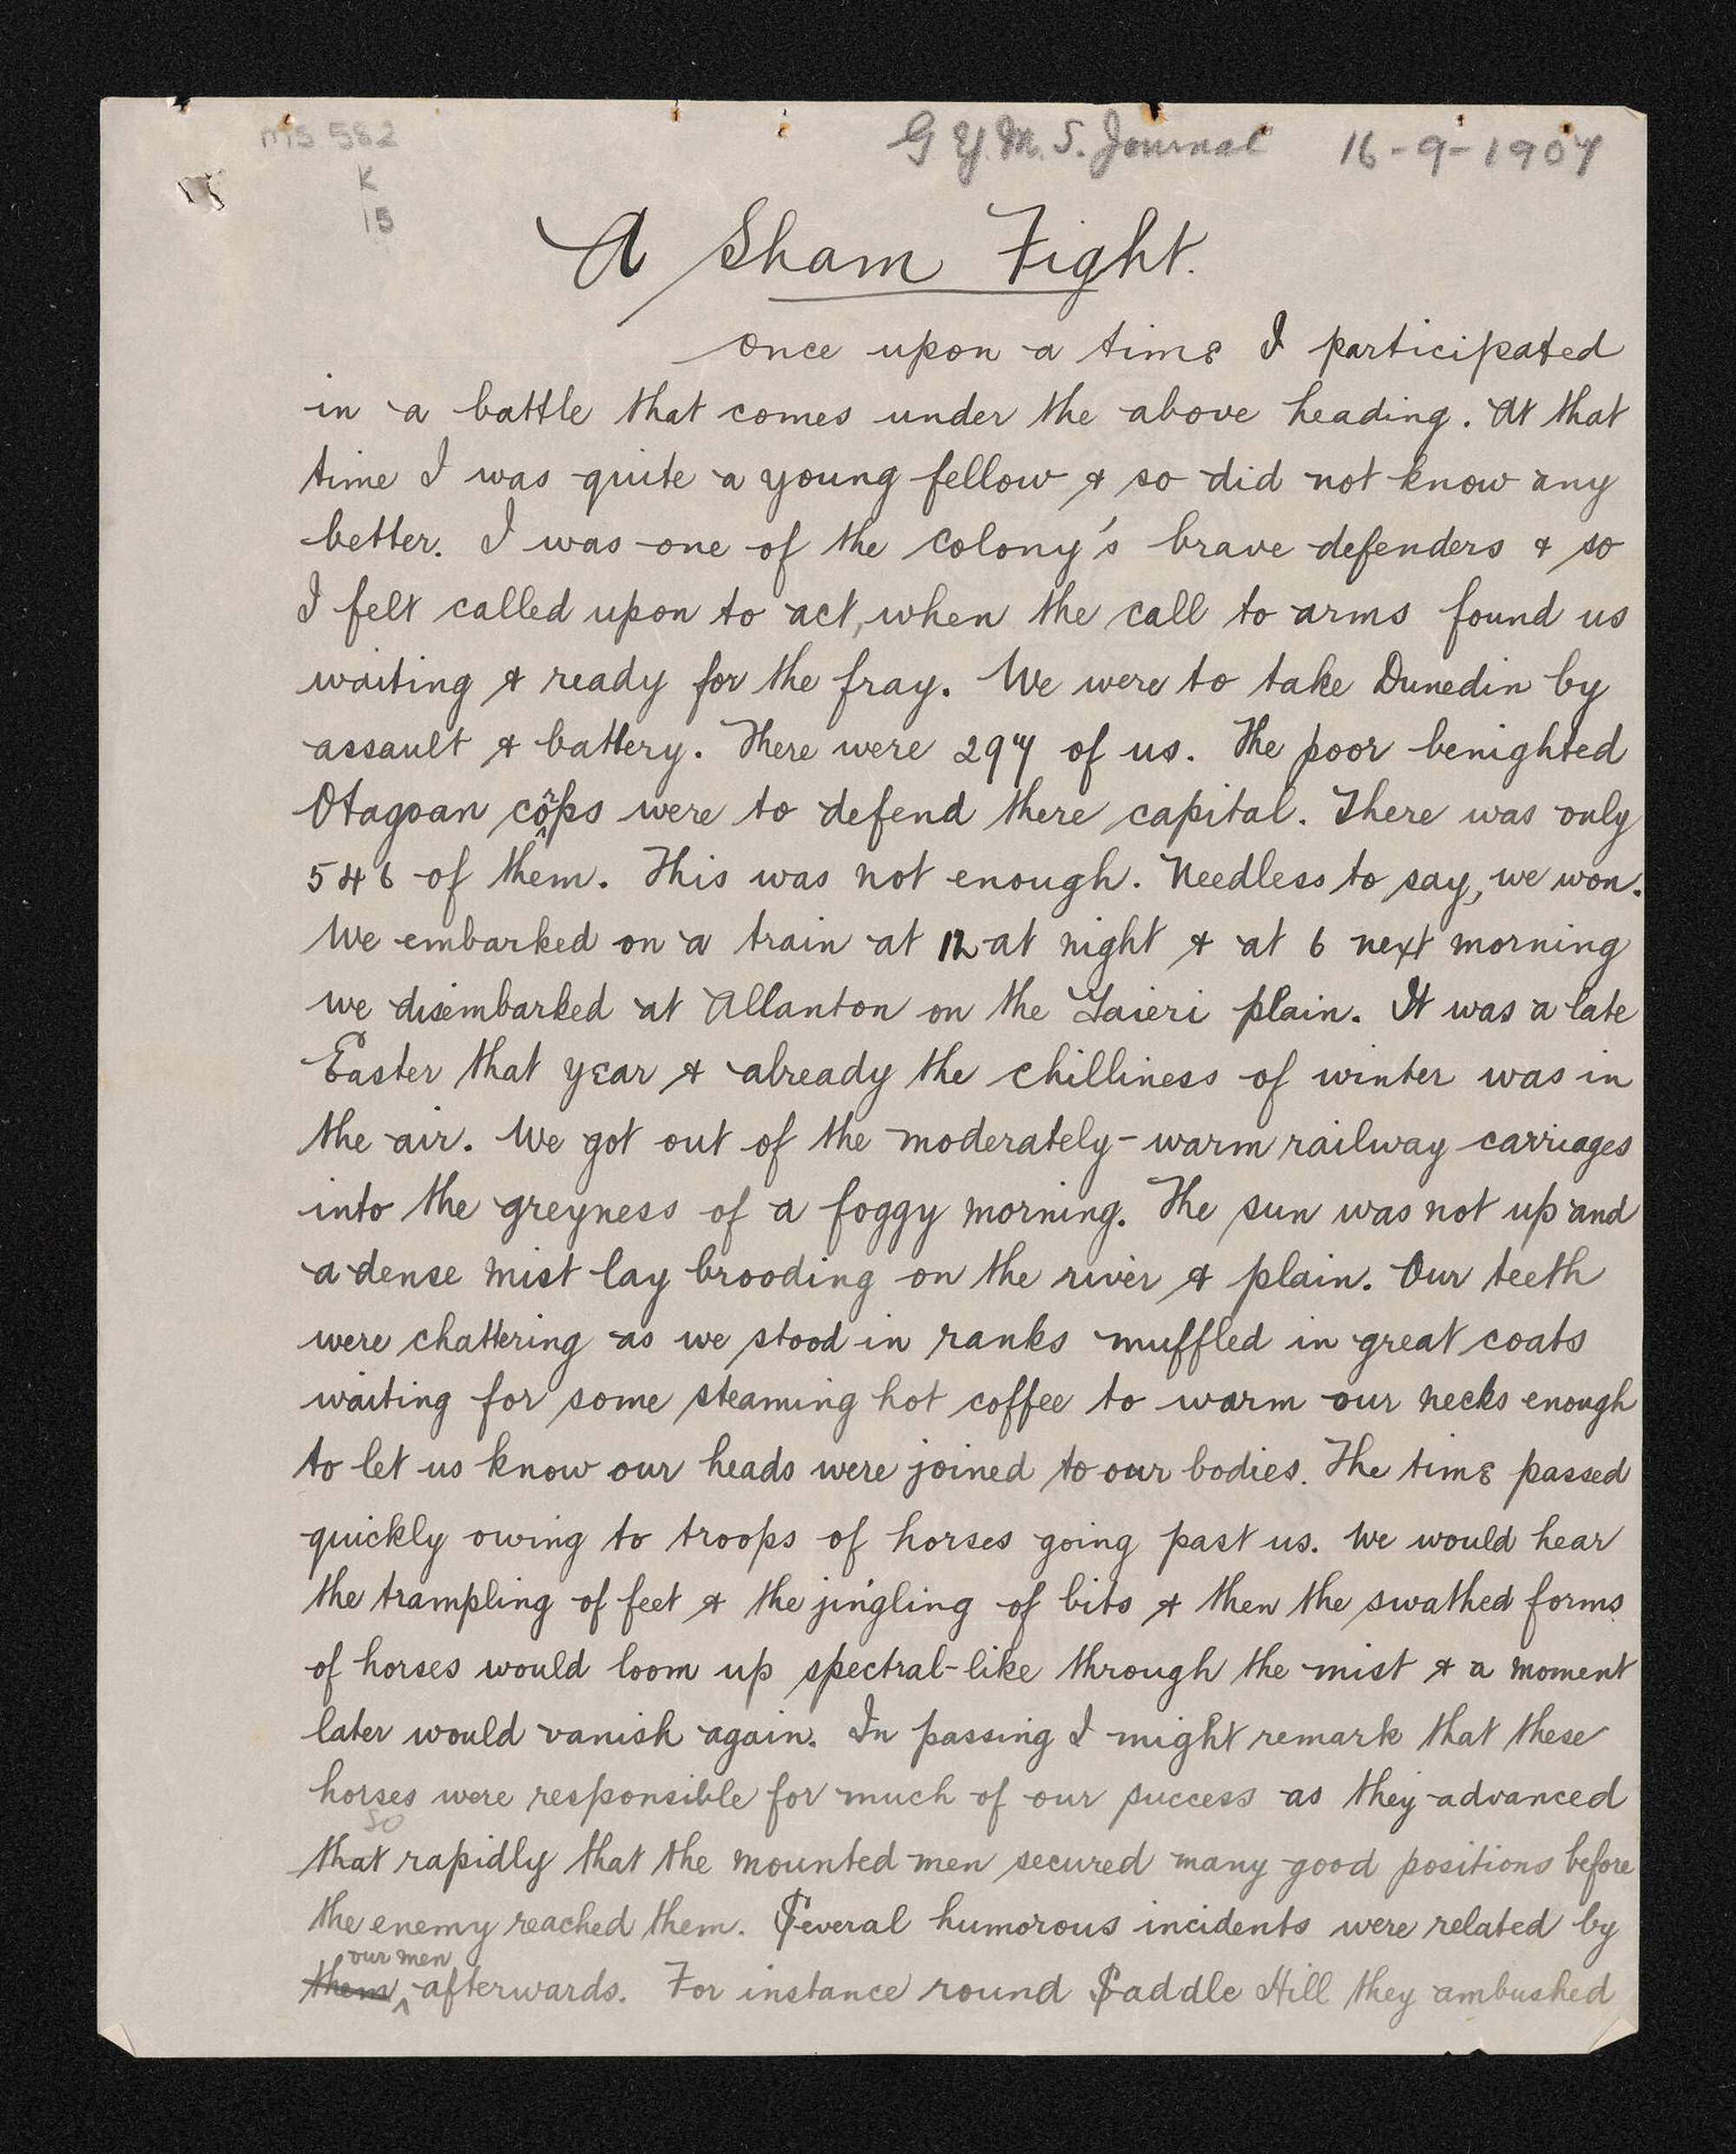 MS 582
K
15
G. Y. M. S. Journal 16-9-1907
A Sham Fight.
Once upon a time I participated
in a battle that comes under the above heading. At that
time I was quite a young fellow & so did not know any
better. I was one of the colony's brave defenders & so
I felt called upon to act, when the call to arms found us
waiting & ready for the fray. We were to take Dunedin by
assault & battery. There were 297 of us. The poor benighted
Otagoan corps were to defend there capital. There was only
546 of them. This was not enough. Needless to say, we won.
We embarked on a train at 12 at night & at 6 next morning
we disembarked at Allanton on the Taieri plain. It was a late
Easter that year & already the chilliness of winter was in
the air. We got out of the moderately-warm railway carriages
into the greyness of a foggy morning. The sun was not up and
a dense mist lay brooding on the river & plain. Our teeth
were chattering as we stood in ranks muffled in great coats
waiting for some steaming hot coffee to warm our necks enough
to let us know our heads were joined to our bodies. The time passed
quickly owing to troops of horses going past us. We would hear
the trampling of feet & the jingling of bits & then the swathed forms
of horses would loom up spectral-like through the mist & a moment
later would vanish again. In passing I might remark that these
horses were responsible for much of our success as they advanced
so
that rapidly that the mounted men secured many good positions before
the enemy reached them. Several humorous incidents were related by
our men
them afterwards. For instance round Saddle Hill they ambushed